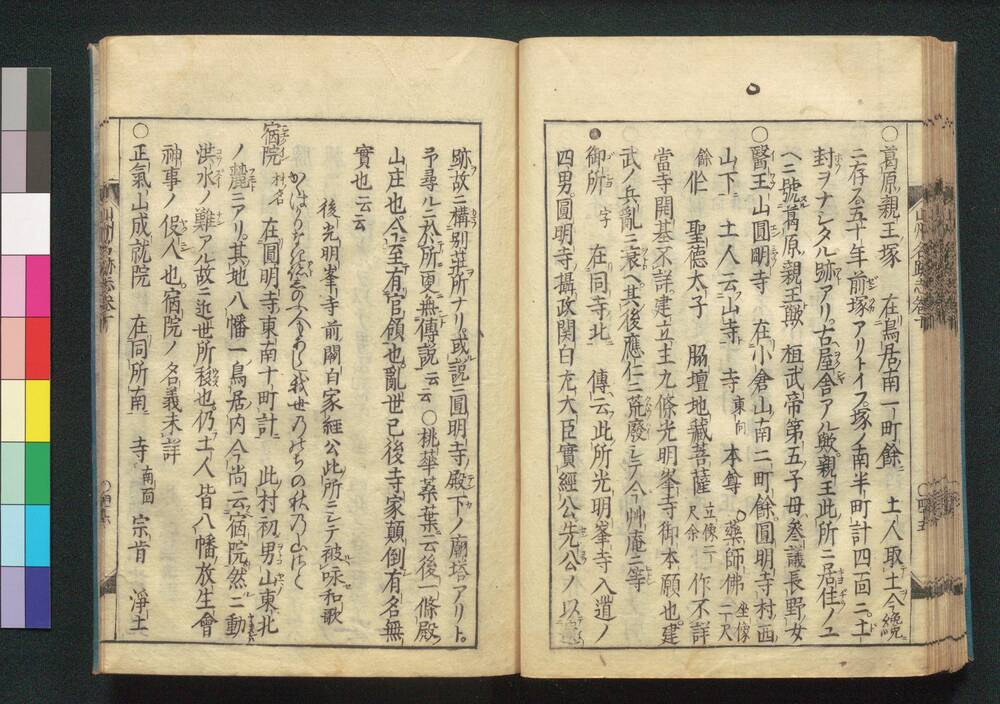 ○葛原親王塚　在鳥居南一町餘　土人取土今纔
ニ存ス五十年前塚アリトイフ塚ノ南半町計四面ニ土
封ヲナシタル跡アリ古屋舎アル歟親王此所ニ居住ノユ
ヘニ號葛原親王歟　桓武帝第五子母參議長野女
○醫王山圓明寺　在小倉山南二町餘圓明寺村西
山下　土人云山寺　寺東向　本尊　薬師佛坐像二尺
餘作　聖德太子　脇壇地藏菩薩立像二尺余　作不詳
當寺開基不詳建立主九條光明峯寺御本願也建
武ノ兵亂ニ衰ヘ其後應仁ニ荒廢シテ今艸庵ニ等
御所字　在同寺北　傳云此所光明峯寺入道ノ
四男圓明寺攝政関白左大臣實經公先公ノ以
跡故ニ構別荘所ナリ或説ニ圓明寺殿下ノ廟塔アリト
予尋ルニ於所更無傳說云云　○桃華蘂葉云後一條殿
山庄也今ニ至有官領也亂世已後寺家顛倒有名無
實也云云
後光明峯寺前關白家經公此所ニシテ被詠和歌
宿院村名　在圓明寺東南十町計　此村初男山東北
ノ麓ニアリ其地八幡一鳥居内今尚云宿院然ニ動
洪水ノ難アル故ニ近世所移也仍土人皆八幡放生會
神事ノ役人也宿院ノ名義未詳
○正氣山成就院　在同所南　寺南面　宗肯　淨土